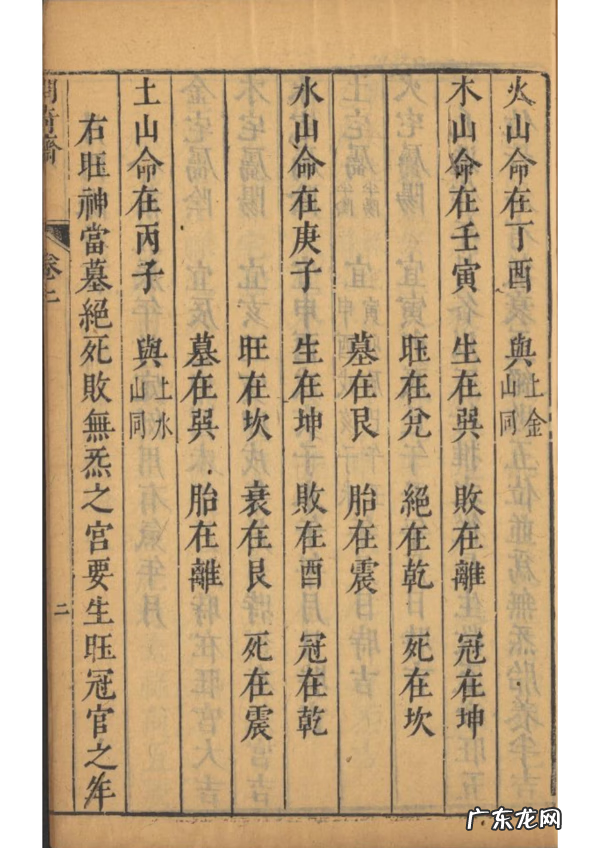 火山命在丁酉　與土金山同
木山命在壬寅　生在巽　敗在離　冠在坤
旺在兊　絕在乾　死在坎
墓在艮　胎在震
水山命在庚子　生在坤　敗在酉　冠在乾
旺在坎　衰在艮　死在震
墓在巽　胎在離
土山命在丙子　與土水山同
右旺神當墓絕死敗無炁之宮要生旺冠官之年
卷上
二
广东龙网